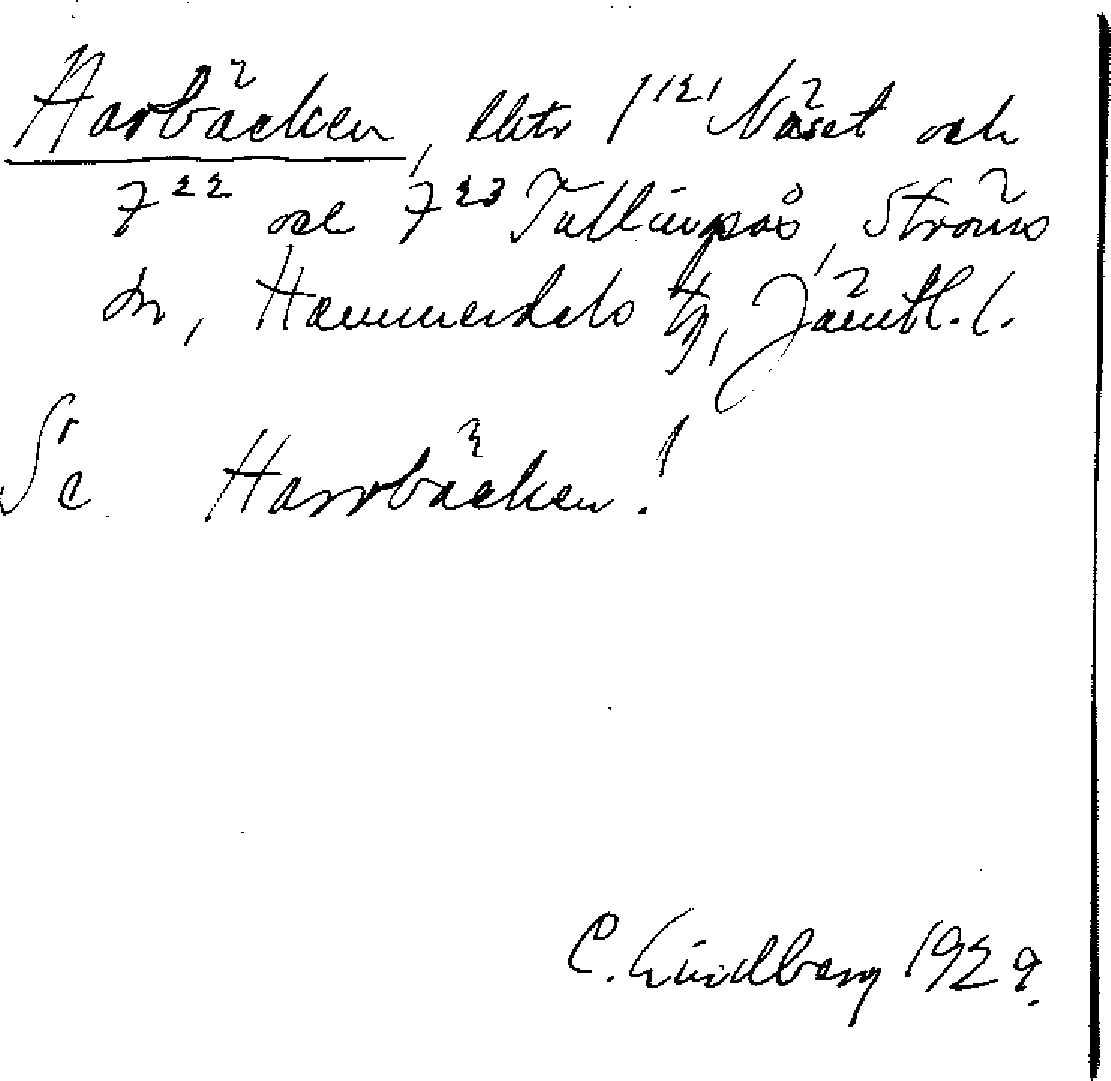 Harbäcken, lhtr 1¹²¹ Näset och
7²² och 7²³ Tullingsås, Ströms
sn, Hammerdals tg, Jämtl. l.
Se Harrbäcken!
C. Lindberg 1929.